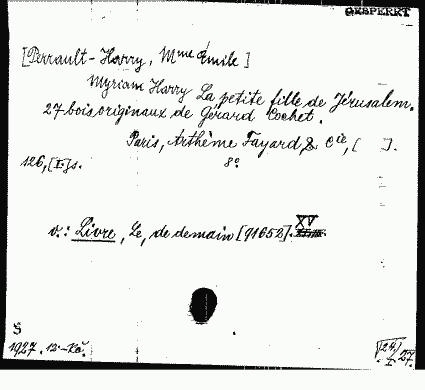 GESPERRT
[Perrault-Harry, Mme Émile]
Myriam Harry La petite fille de Jérusalem.
27 bois originaux de Gérard Cochet.
Paris, Arthème Fayard & Cie, [ ].
126, [I] s. 8°
v.: Livre, Le, de demain [91652]. XV
Š
1927. 12-Kč.